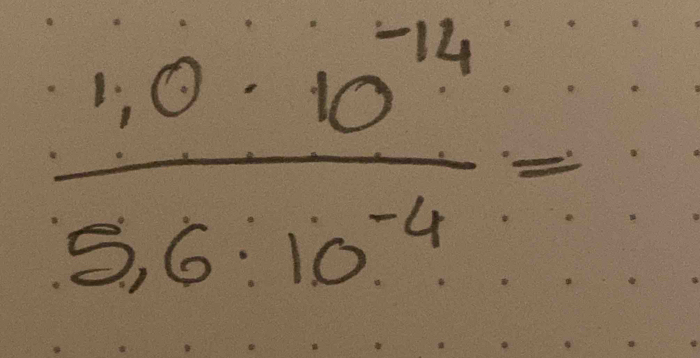 1,0 · 10⁻¹⁴
5,6 · 10⁻⁴ =